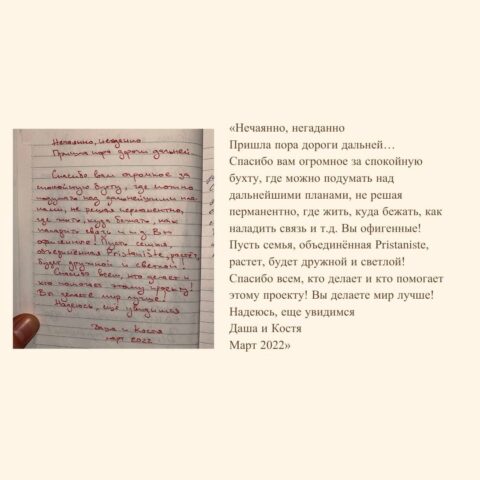 Нечаянно, негаданно
Пришла пора дороги дальней
Спасибо вам огромное за
спокойную бухту, где можно
подумать над дальнейшими пла-
нами, не решая перманентно,
где жить, куда бежать, как
наладить связь и т.д. Вы
офигенные! Пусть семья,
объединённая Pristaniste, растёт,
будет дружной и светлой!
Спасибо всем, кто делает и
кто помогает этому проекту!
Вы делаете мир лучше!
Надеюсь, ещё увидимся
Даша и Костя
март 2022
«Нечаянно, негаданно
Пришла пора дороги дальней…
Спасибо вам огромное за спокойную
бухту, где можно подумать над
дальнейшими планами, не решая
перманентно, где жить, куда бежать, как
наладить связь и т.д. Вы офигенные!
Пусть семья, объединённая Pristaniste,
растет, будет дружной и светлой!
Спасибо всем, кто делает и кто помогает
этому проекту! Вы делаете мир лучше!
Надеюсь, еще увидимся
Даша и Костя
Март 2022»